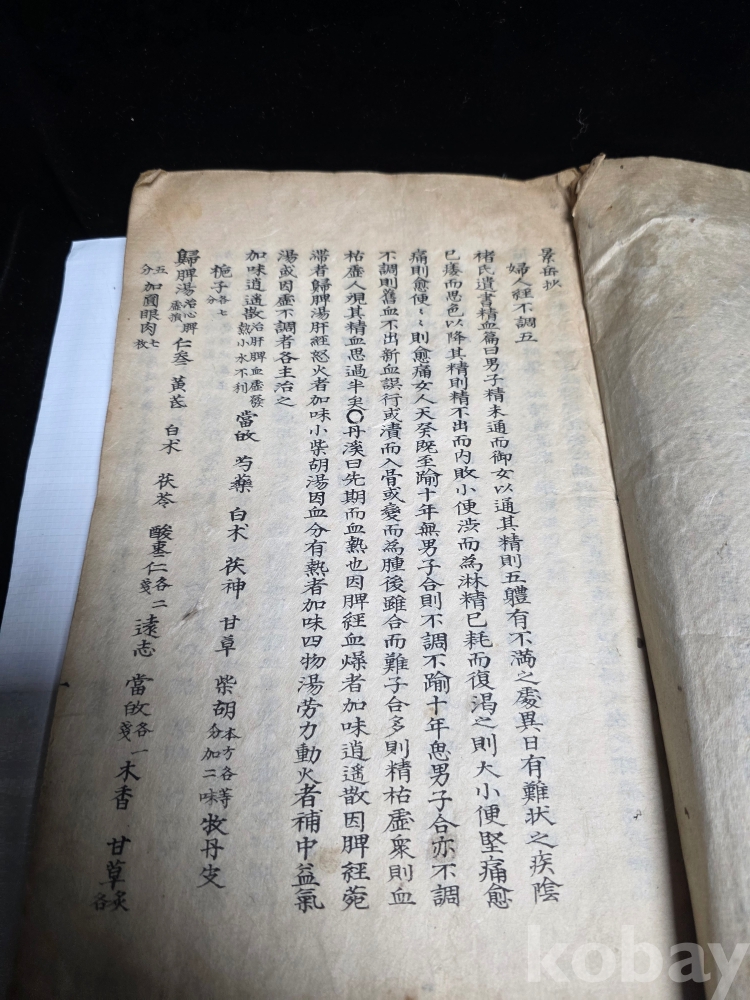 景岳抄
婦人経不調五
褚氏遺書精血篇曰男子精未通而御女以通其精則五軆有不満之處異日有難状之疾陰
已痿而思色以降其精則精不出而内敗小便渋而為淋精已耗而復渇之則大小便堅痛愈
痛則愈便〻則愈痛女人天癸既至踰十年無男子合則不調不踰十年思男子合亦不調
不調則舊血不出新血誤行或漬而入骨或變而為腫後雖合而難子合多則精枯虛衆則血
枯虛人現其精血思過半矣〇丹溪曰先期而血熱也因脾經血燥者加味逍遙散因脾經菀
滞者歸脾湯肝經怒火者加味小柴胡湯因血分有熱者加味四物湯労力動火者補中益氣
湯或因虛不調者各主治之
加味逍遙散治肝脾血虛發熱小水不利 當皈 芍藥 白朮 茯神 甘草 柴胡各等分 本方加二味 牧丹皮
梔子各七分
歸脾湯治心脾虛損 仁參 黃芪 白朮 茯苓 酸棗仁各二戔 遠志 當皈各一戔 木香 甘草炙各
五分 加圓眼肉七枚
kobay